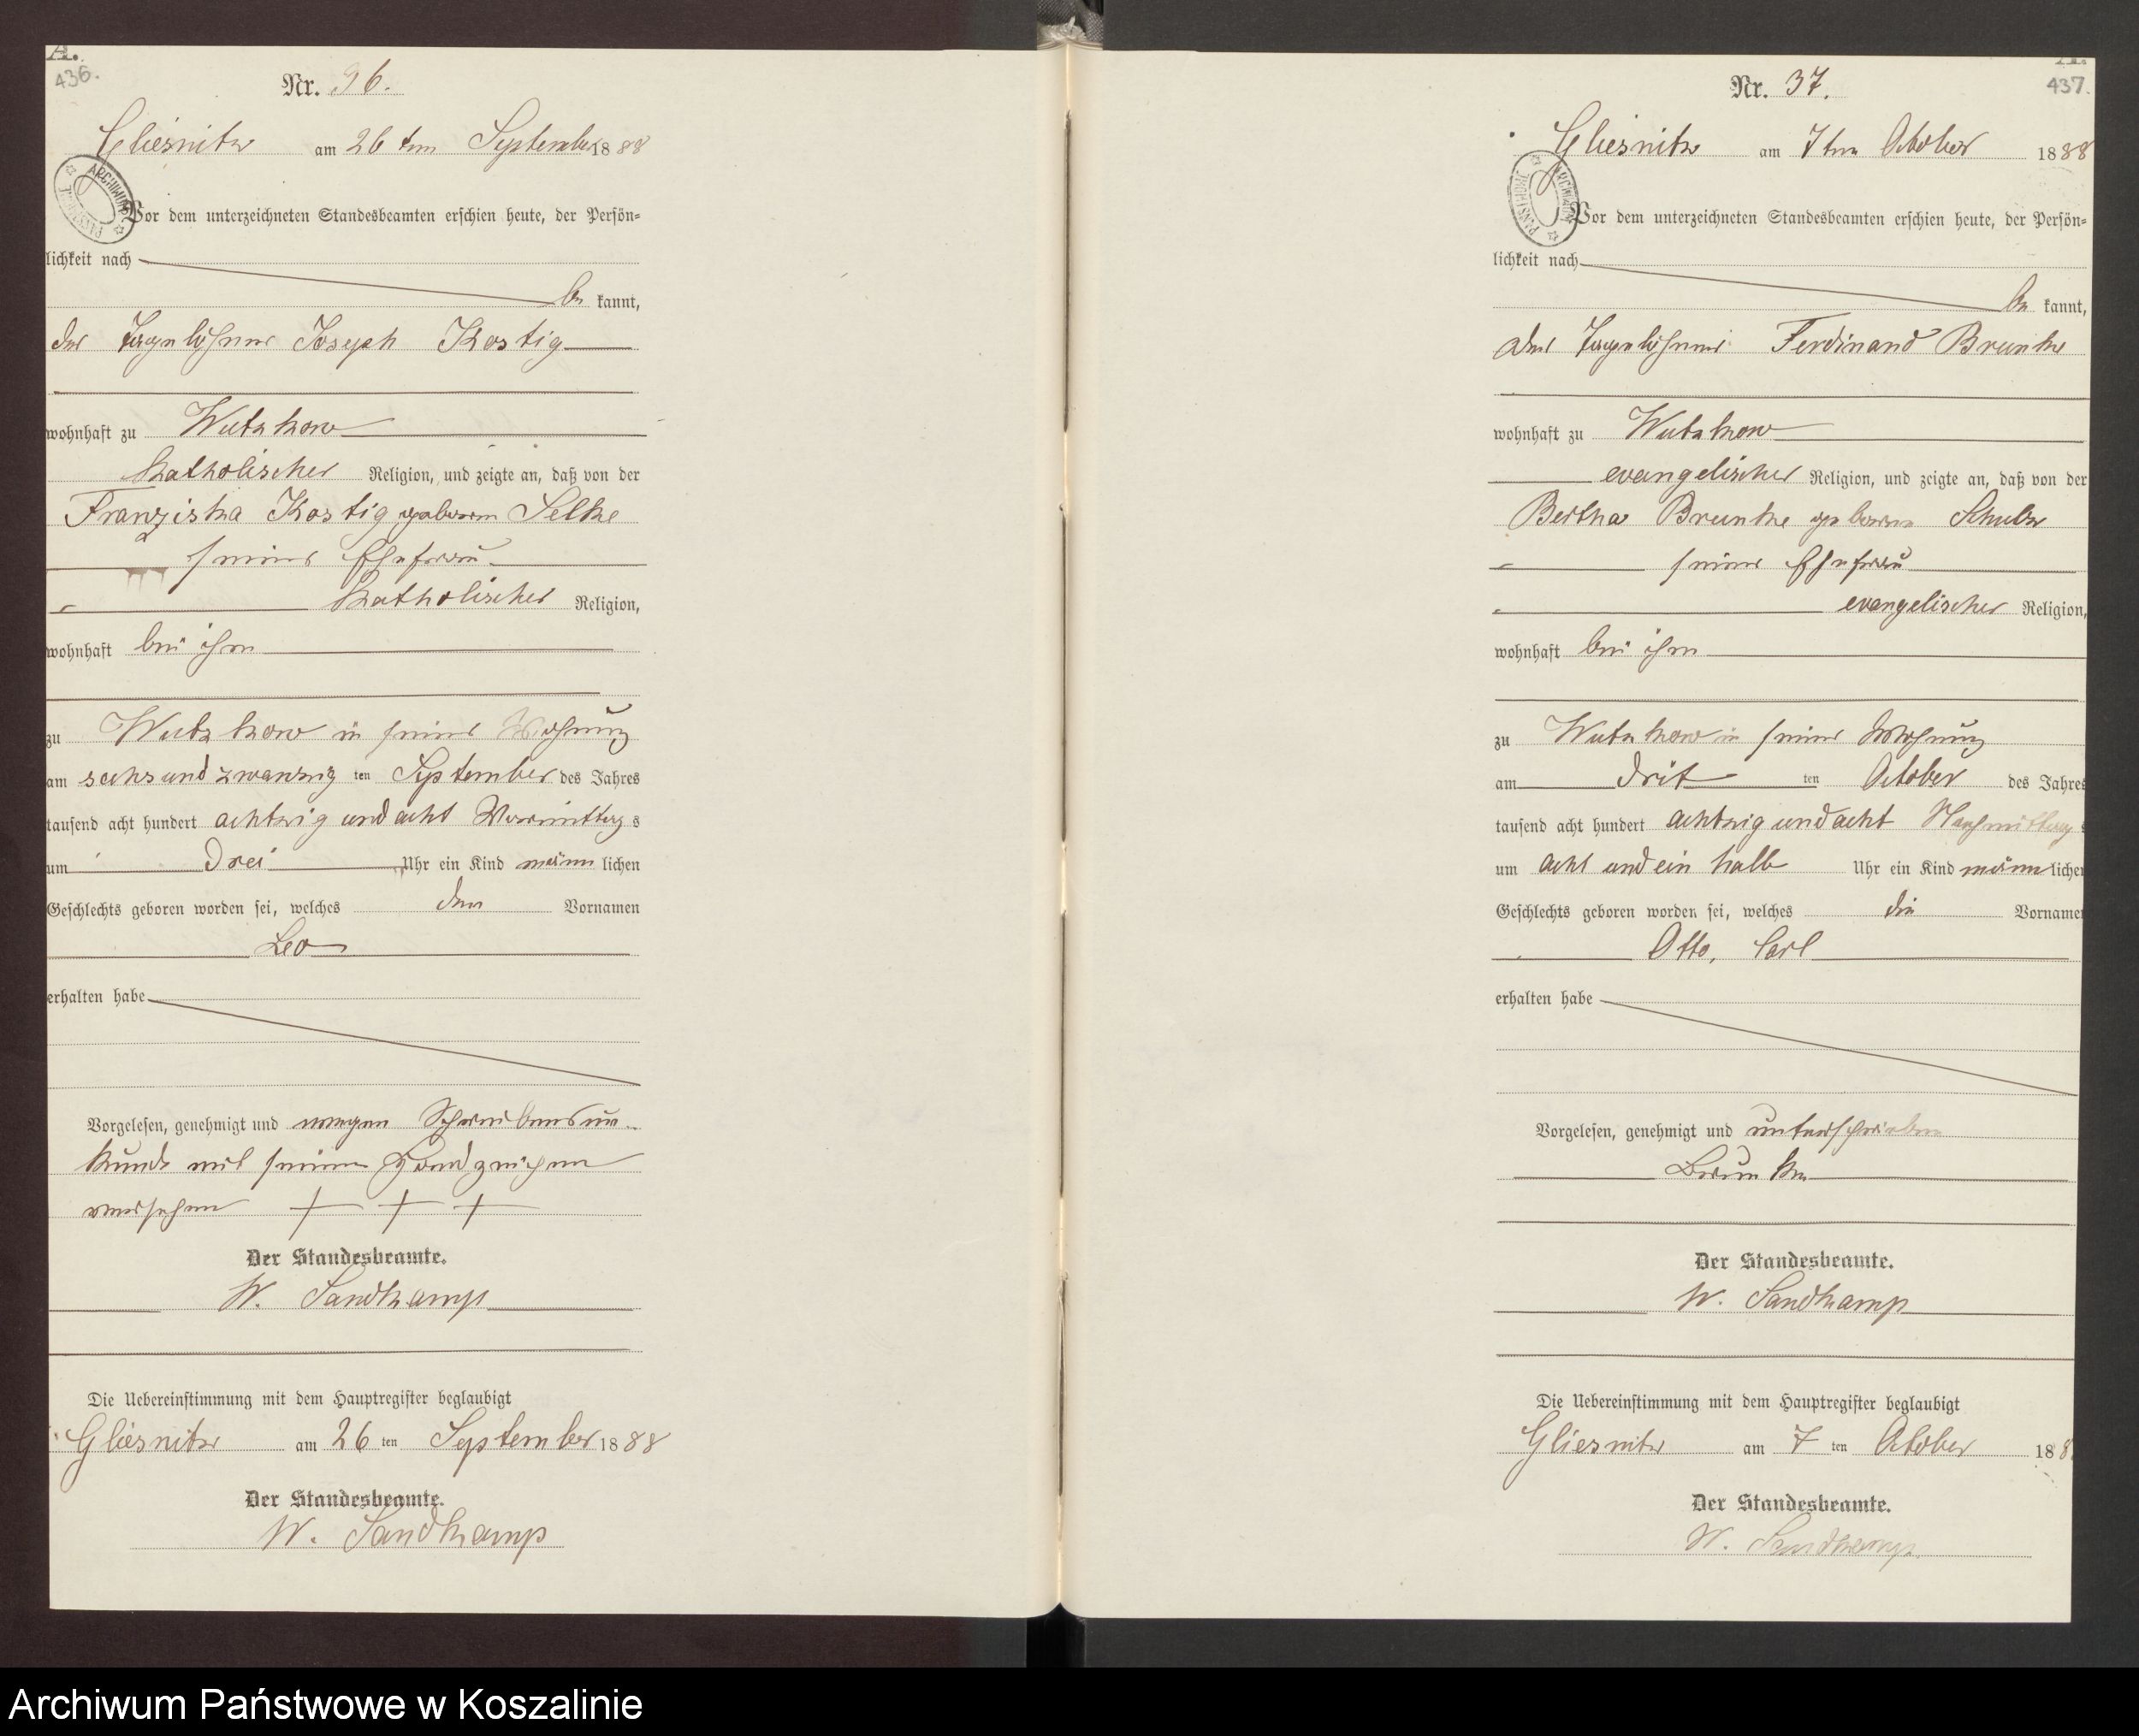 A.
436.
Nr. 36.
Gliesnitz am 26ten September 1888
ARCHIWUM PAŃSTWOWE
Vor dem unterzeichneten Standesbeamten erschien heute, der Persön=
lichkeit nach
be kannt,
der Tagelöhner Joseph Kostig
wohnhaft zu Wutzkow
katholischer Religion, und zeigte an, daß von der
Franziska Kostig geboren Selke
seiner Ehefrau
katholischer Religion,
wohnhaft bei ihm
zu Wutzkow in seiner Wohnung
am sechsundzwanzig ten September des Jahres
tausend acht hundert achtzig und acht Vormittags
um drei Uhr ein Kind männ lichen
Geschlechts geboren worden sei, welches den Vornamen
Leo
erhalten habe
Vorgelesen, genehmigt und wegen Schreibensun-
kunde mit seinem Handzeichen
versehen + + +
Der Standesbeamte.
W. Sandkamp
Die Uebereinstimmung mit dem Hauptregister beglaubigt
Gliesnitz am 26 ten September 1888
Der Standesbeamte.
W. Sandkamp
437.
Nr. 37.
Gliesnitz am 7ten October 1888
ARCHIWUM PAŃSTWOWE
Vor dem unterzeichneten Standesbeamten erschien heute, der Persön=
lichkeit nach
be kannt,
der Tagelöhner Ferdinand Brunke
wohnhaft zu Wutzkow
evangelischer Religion, und zeigte an, daß von der
Bertha Brunke geboren Schulz
seiner Ehefrau
evangelischer Religion,
wohnhaft bei ihm
zu Wutzkow in seiner Wohnung
am drit ten October des Jahres
tausend acht hundert achtzig und acht Nachmittag
um acht und ein halb Uhr ein Kind männ lichen
Geschlechts geboren worden sei, welches die Vornamen
Otto, Carl
erhalten habe
Vorgelesen, genehmigt und unterschrieben
Brunke
Der Standesbeamte.
W. Sandkamp
Die Uebereinstimmung mit dem Hauptregister beglaubigt
Gliesnitz am 7 ten October 188
Der Standesbeamte.
W. Sandkamp
Archiwum Państwowe w Koszalinie